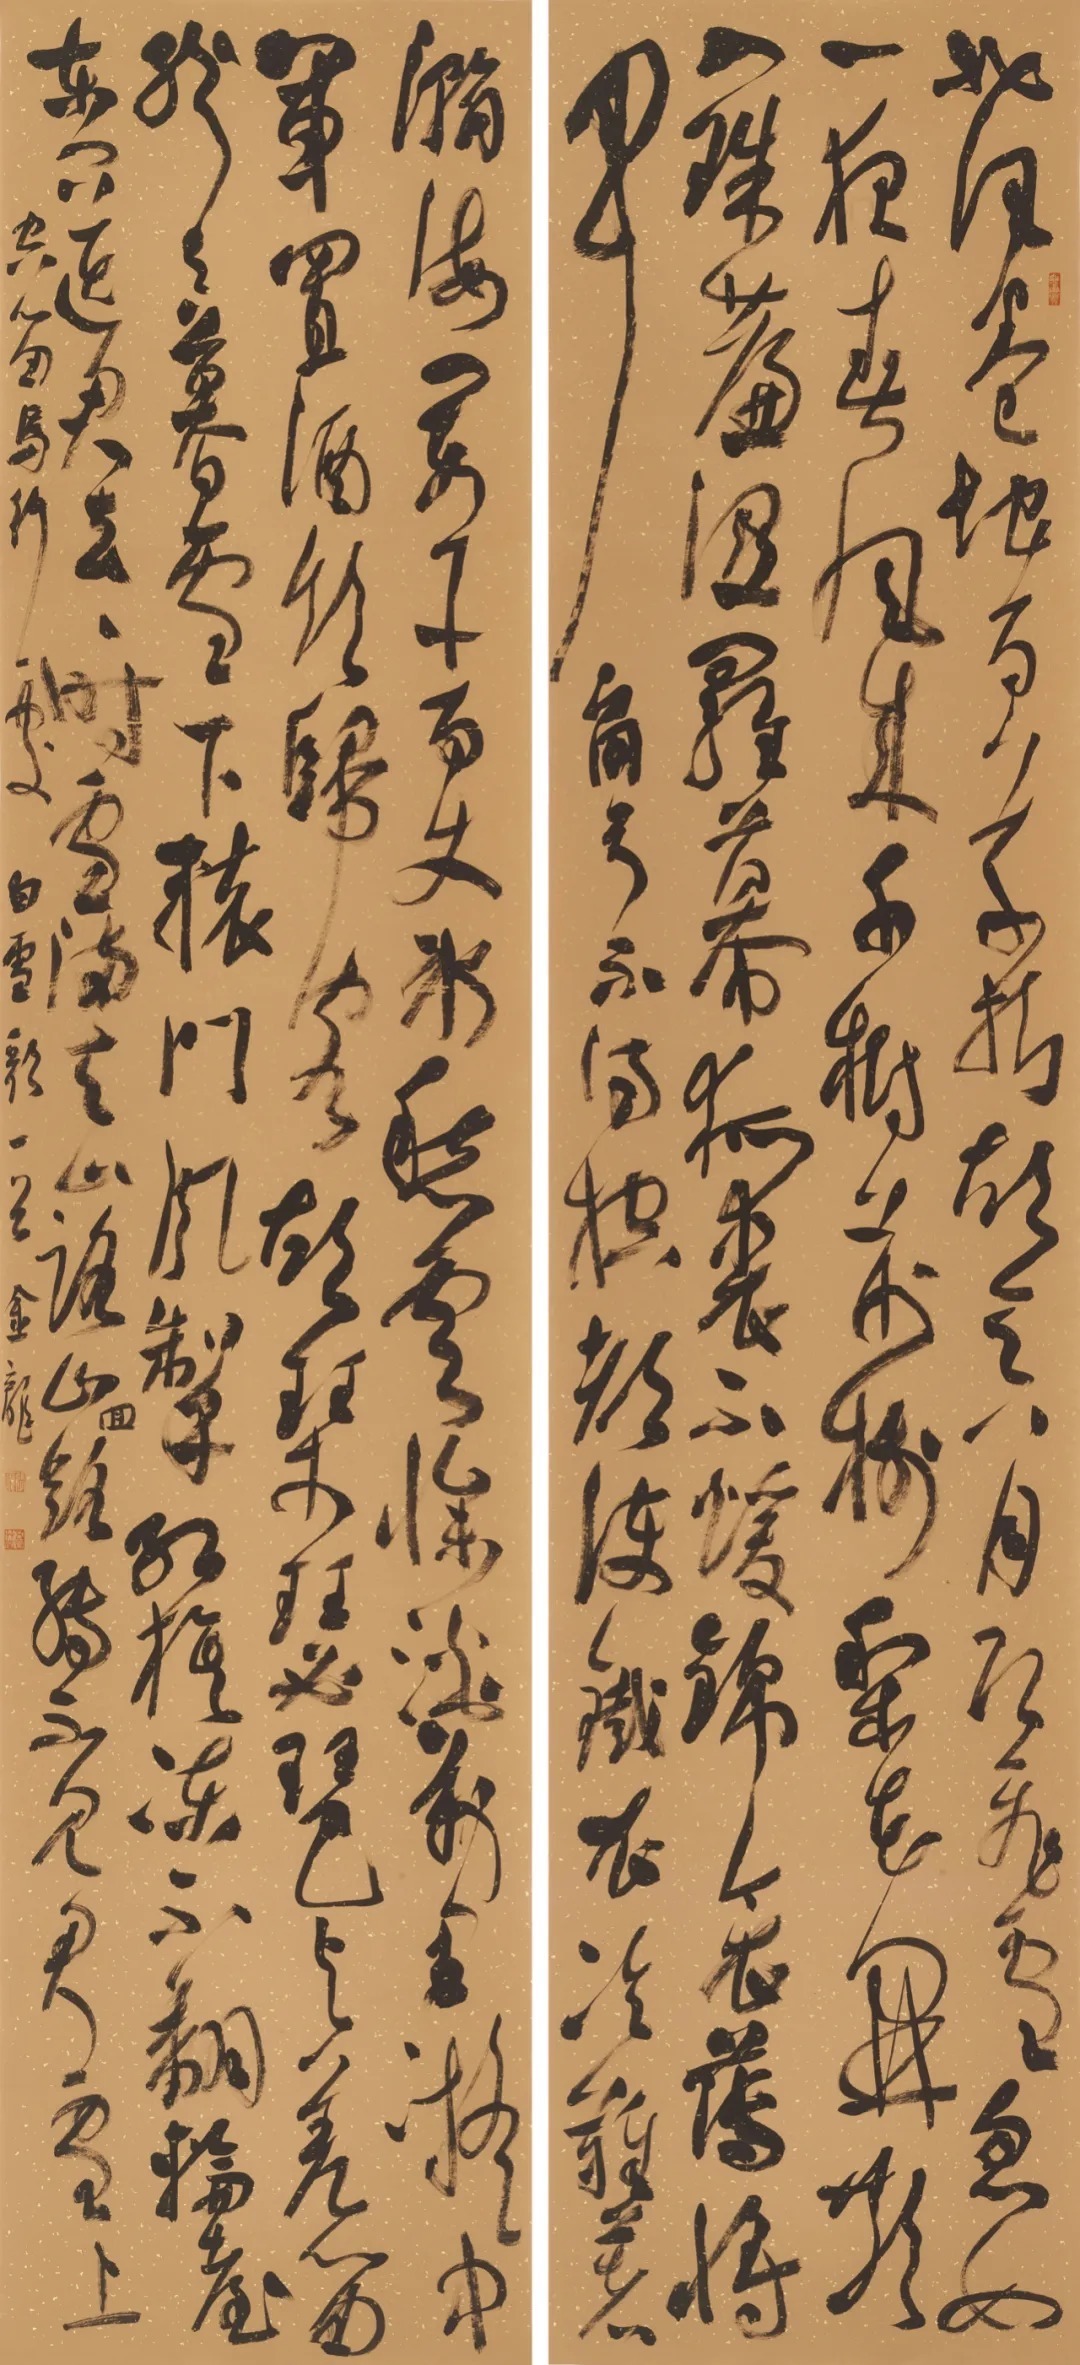 北風卷地百草折胡天八月即飛雪忽如
一夜春風來千樹萬樹梨花開散
入珠簾濕羅幕狐裘不煖錦衾薄將
軍角弓不得控都護鐵衣冷難著
瀚海闌干百丈冰愁雲慘淡萬里凝中
軍置酒飲歸客胡琴琵琶與羌笛
紛々暮雪下轅門風掣紅旗凍不翻輪臺
東門送君去々時雪滿天山路山回路轉不見君雪上
空留馬行處 白雪歌一首 金龍